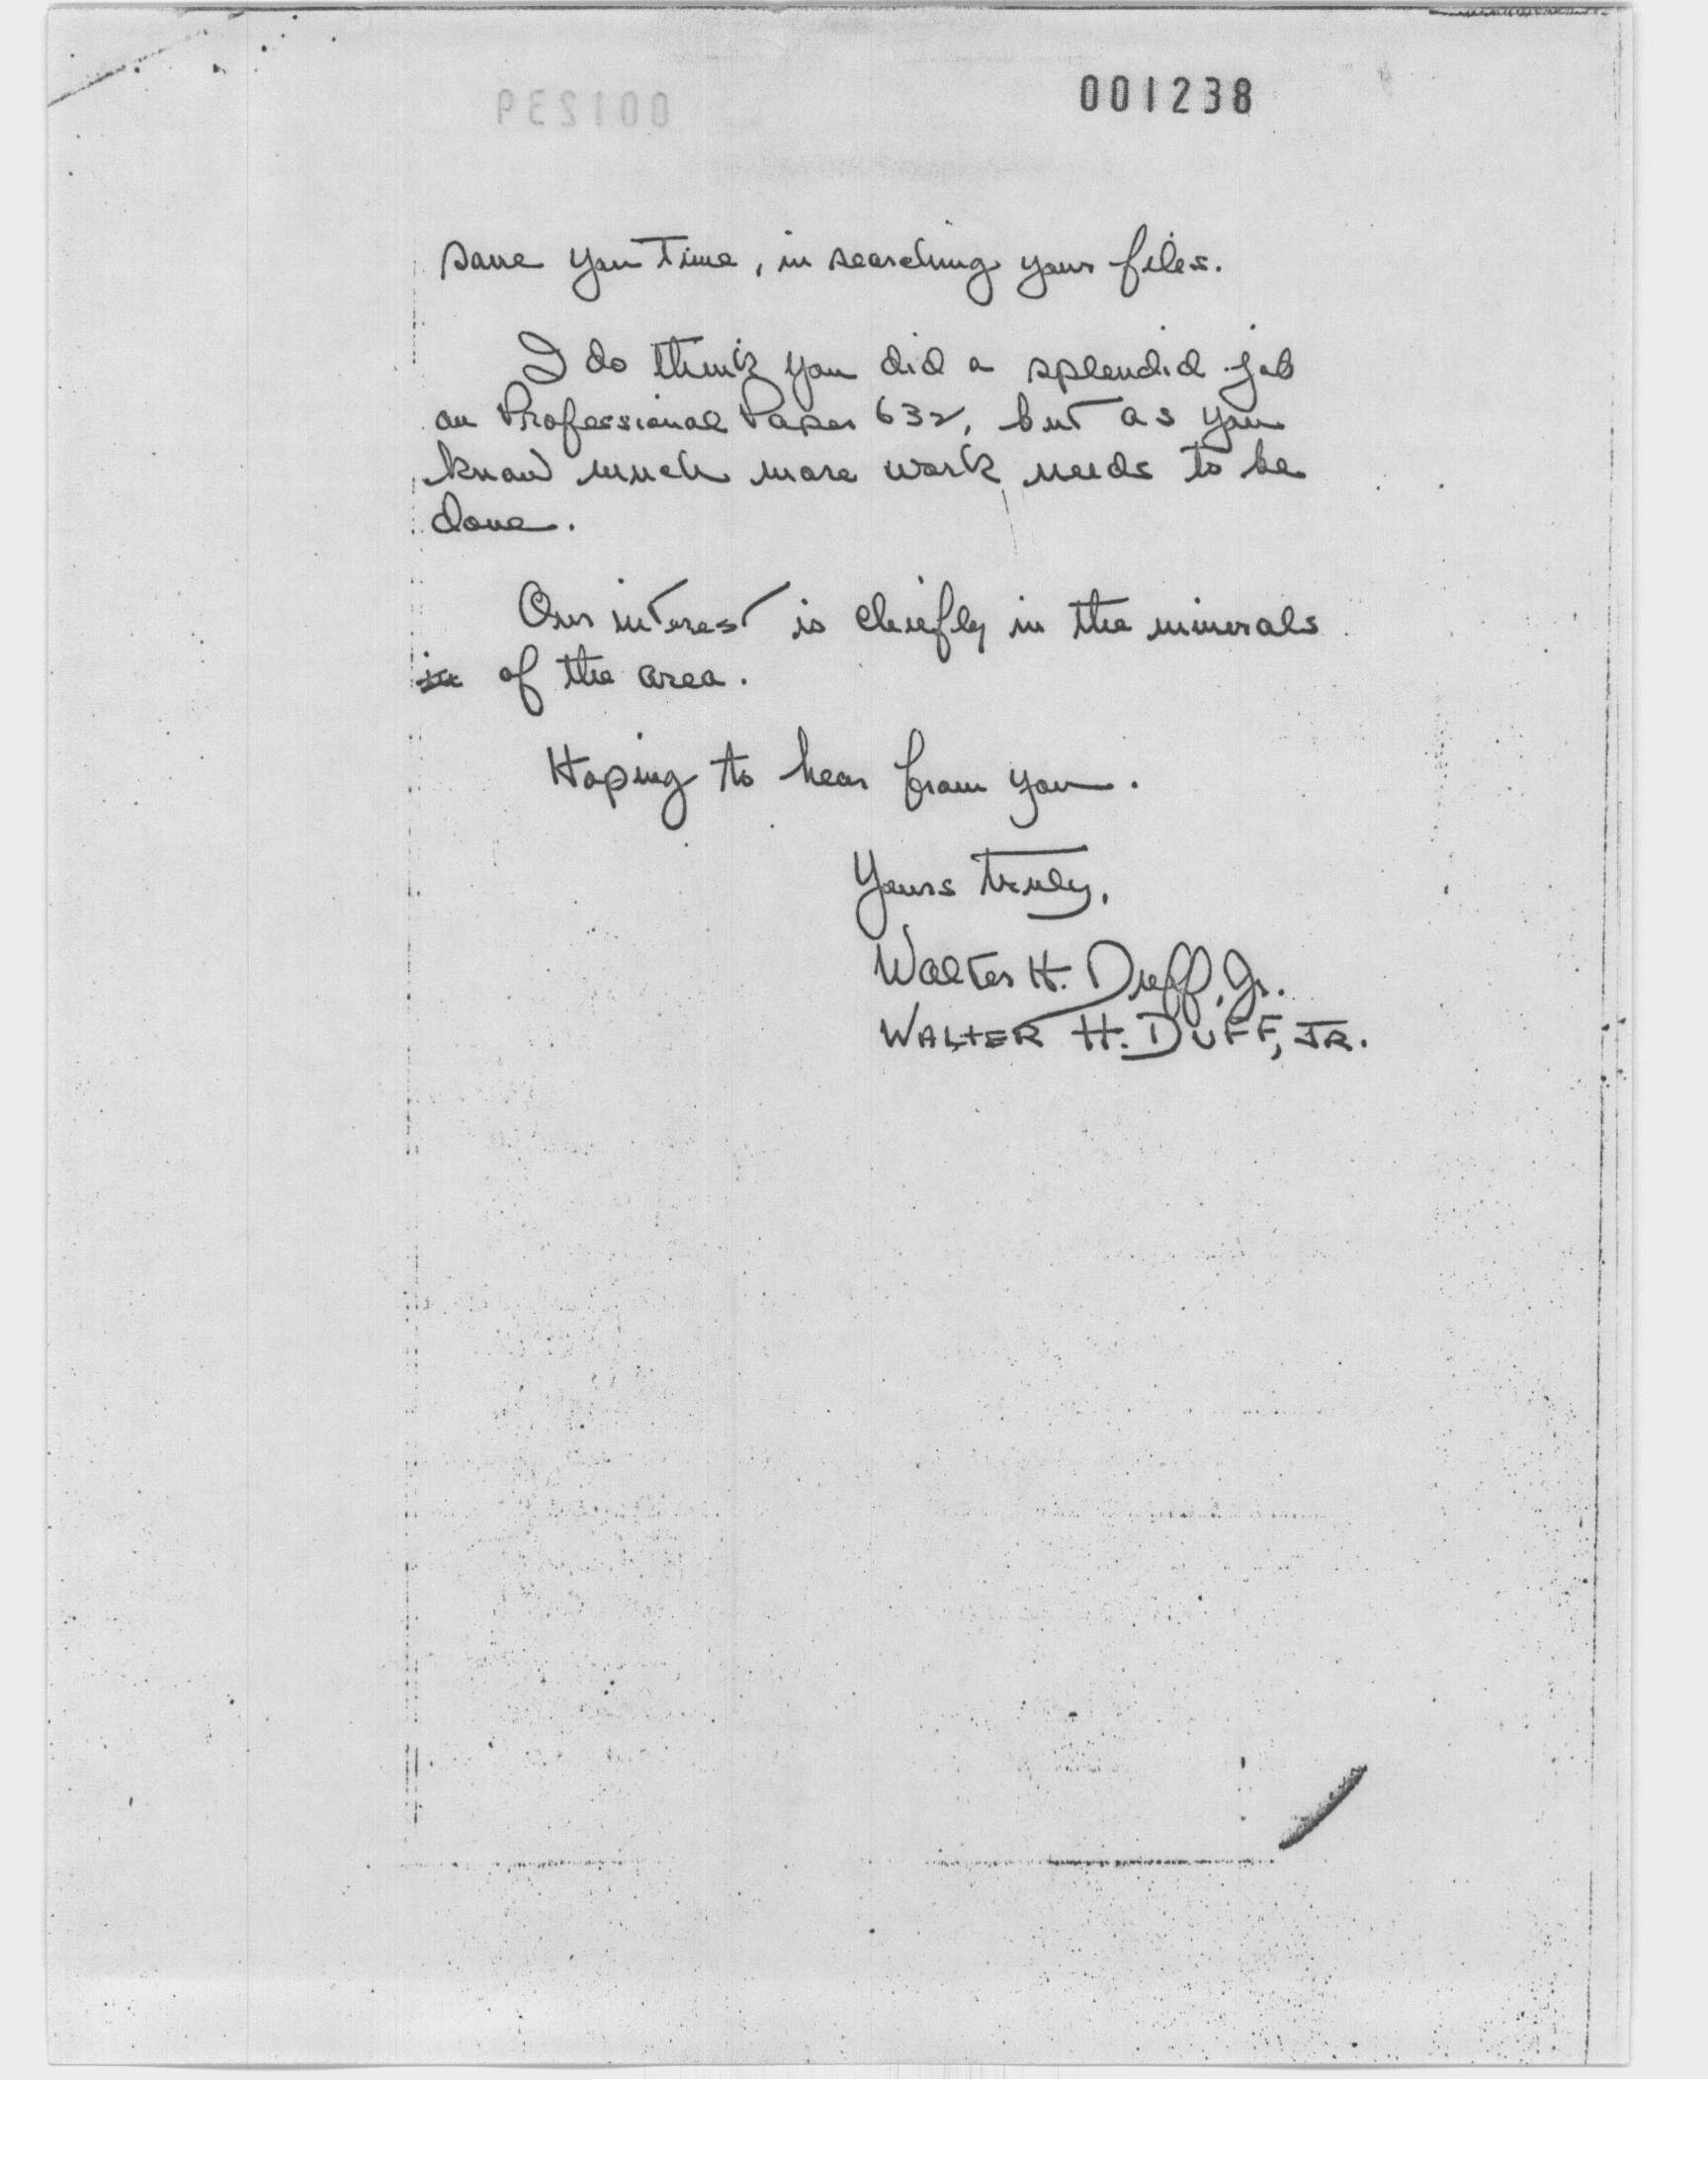 001239
001238
save you time, in searching your files.
I do think you did a splendid job
on Professional Paper 632, but as you
know much more work needs to be
done.
Our interest is chiefly in the minerals
in of the area.
Hoping to hear from you.
Yours truly,
Walter H. Duff, Jr.
WALTER H. DUFF, JR.